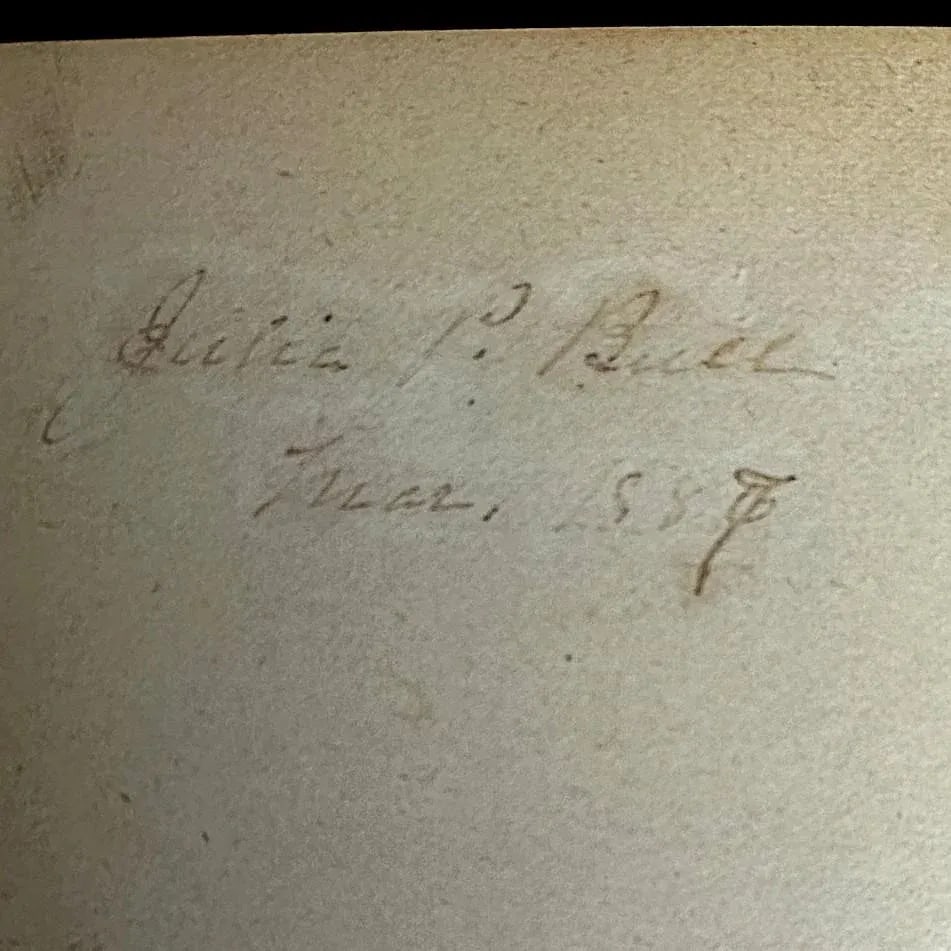 Julia P. Buell
Mar, 1887